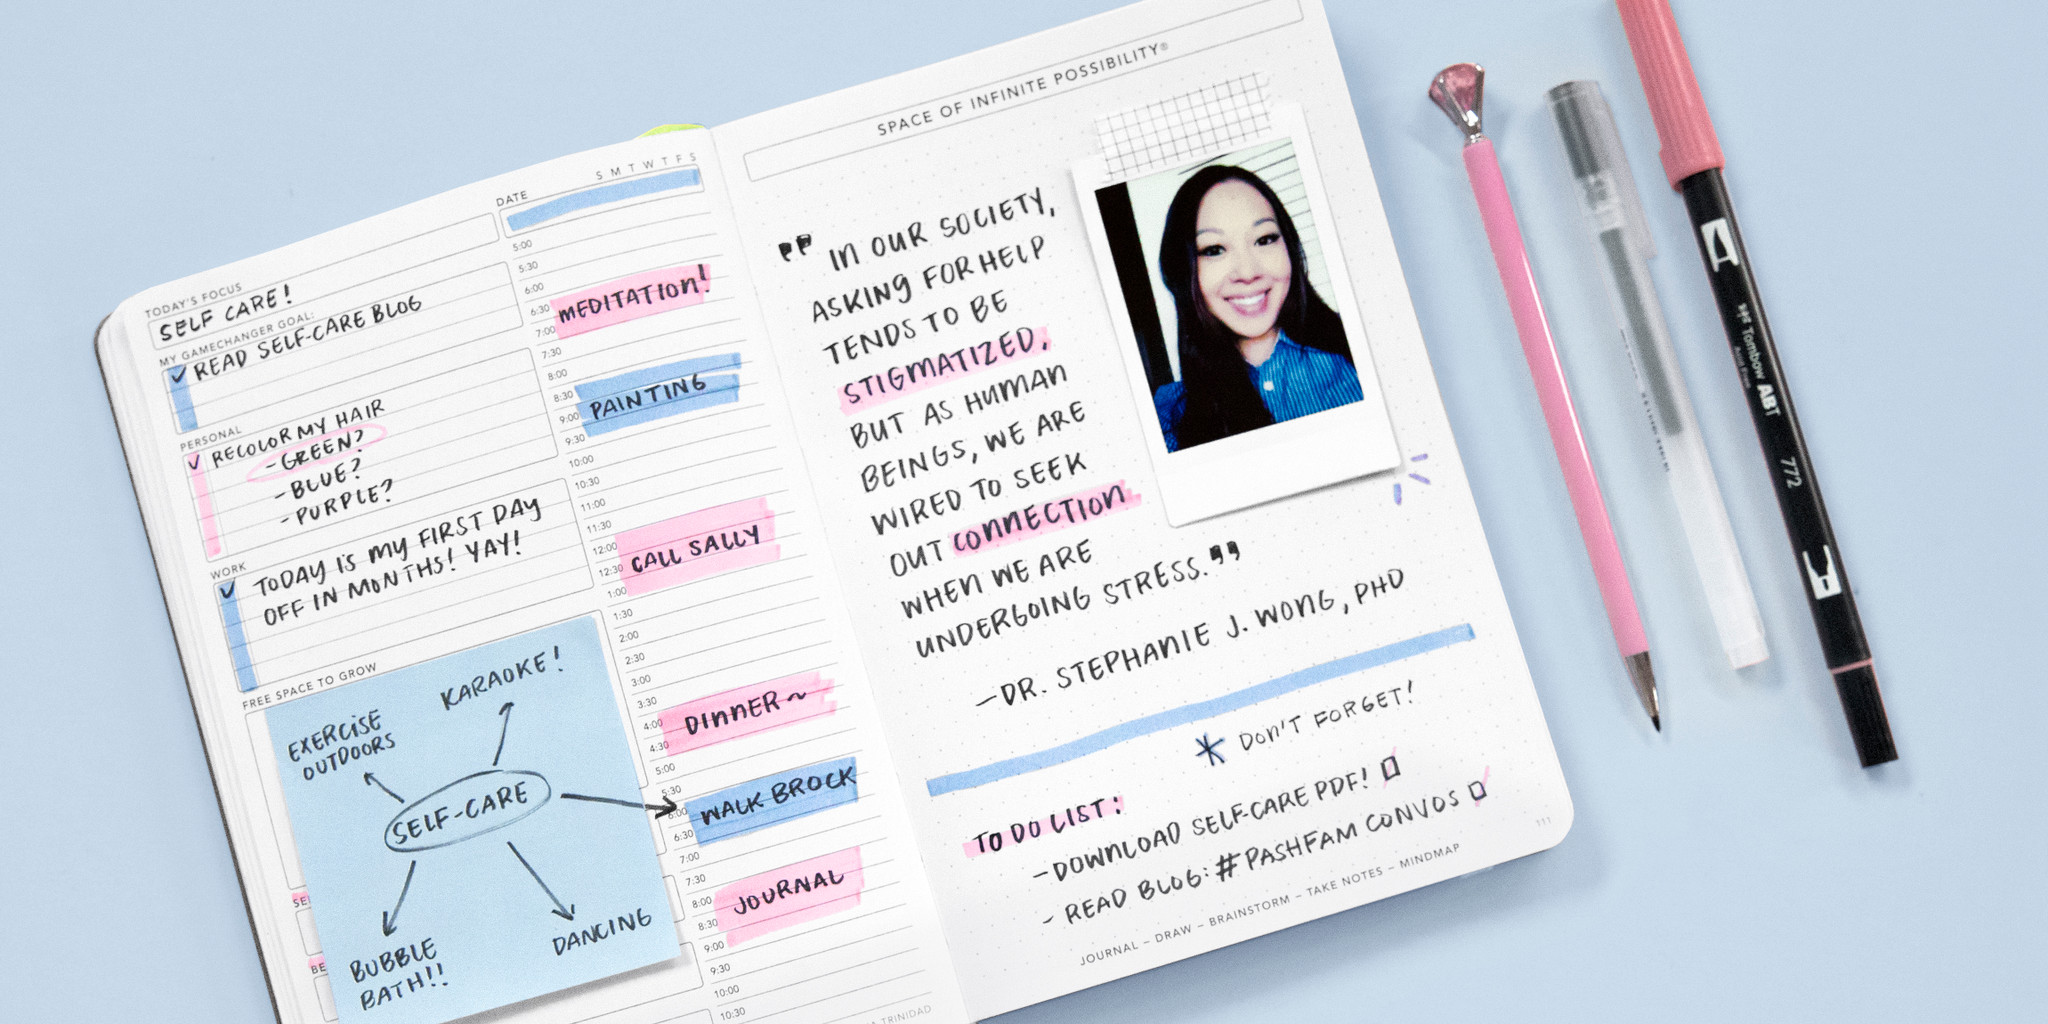 DATE
S M T W T F S
TODAY'S FOCUS
SELF CARE!
MY GAMECHANGER GOAL:
READ SELF-CARE BLOG
PERSONAL
RECOLOR MY HAIR
-GREEN?
-BLUE?
-PURPLE?
WORK
TODAY IS MY FIRST DAY
OFF IN MONTHS! YAY!
FREE SPACE TO GROW
KARAOKE!
EXERCISE
OUTDOORS
SELF-CARE
BUBBLE
BATH!!
DANCING
5:00
5:30
6:00
6:30
MEDITATION!
7:00
7:30
8:00
8:30
PAINTING
9:00
9:30
10:00
10:30
11:00
11:30
12:00
CALL SALLY
12:30
1:00
1:30
2:00
2:30
3:00
3:30
4:00
DINNER~
4:30
5:00
5:30
6:00
WALK BROCK
6:30
7:00
7:30
8:00
JOURNAL
8:30
9:00
9:30
10:00
10:30
TRINIDAD
SPACE OF INFINITE POSSIBILITY®
"IN OUR SOCIETY,
ASKING FOR HELP
TENDS TO BE
STIGMATIZED,
BUT AS HUMAN
BEINGS, WE ARE
WIRED TO SEEK
OUT CONNECTION
WHEN WE ARE
UNDERGOING STRESS."
—DR. STEPHANIE J. WONG, PHD
* DON'T FORGET!
TO DO LIST:
-DOWNLOAD SELF-CARE PDF!
- READ BLOG: #PASHFAM CONVOS
JOURNAL – DRAW – BRAINSTORM – TAKE NOTES – MINDMAP
111
Tombow ABT
772